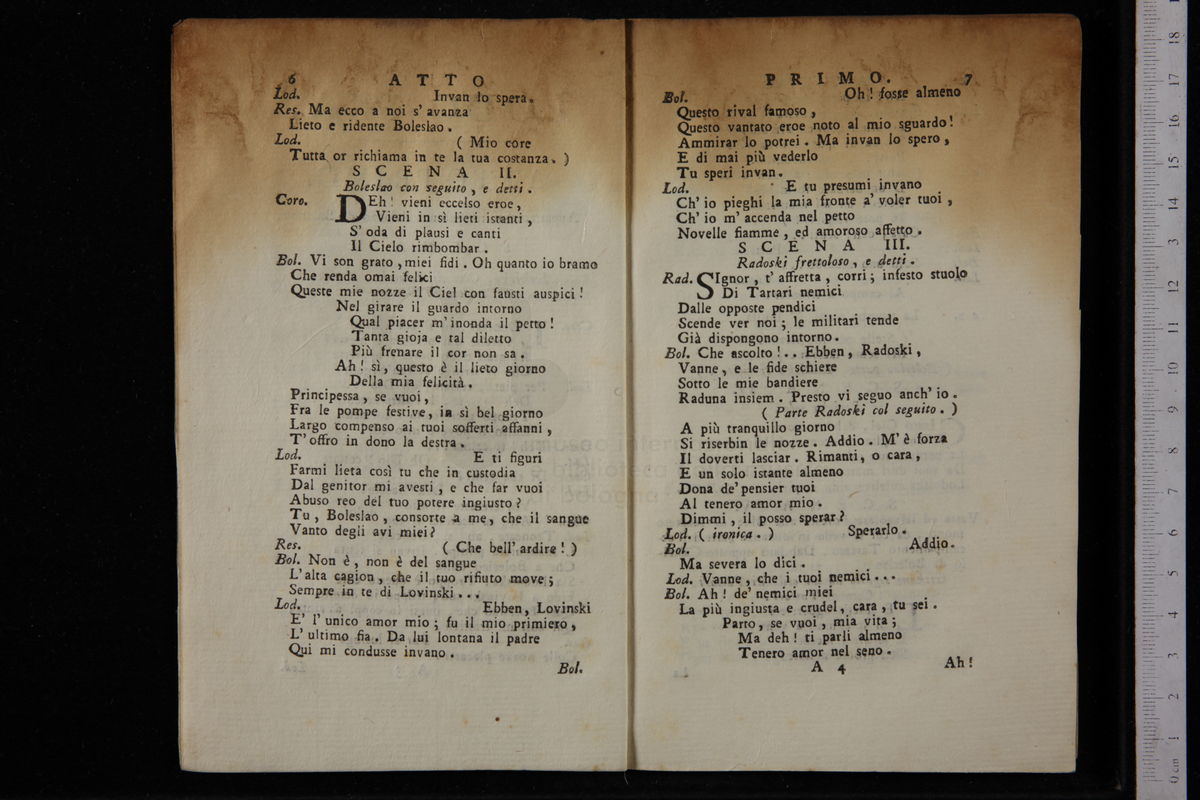 6 ATTO
Lod. Invan lo spera.
Res. Ma ecco a noi s' avanza
Lieto e ridente Boleslao.
Lod. ( Mio core
Tutta or richiama in te la tua costanza. )
SCENA II.
Boleslao con seguito, e detti.
Coro. DEh! vieni eccelso eroe,
Vieni in sì lieti istanti,
S' oda di plausi e canti
Il Cielo rimbombar.
Bol. Vi son grato, miei fidi. Oh quanto io bramo
Che renda omai felici
Queste mie nozze il Ciel con fausti auspici!
Nel girare il guardo intorno
Qual piacer m' inonda il petto!
Tanta gioja e tal diletto
Più frenare il cor non sa.
Ah! sì, questo è il lieto giorno
Della mia felicità.
Principessa, se vuoi,
Fra le pompe festive, in sì bel giorno
Largo compenso ai tuoi sofferti affanni,
T' offro in dono la destra.
Lod. E ti figuri
Farmi lieta così tu che in custodia
Dal genitor mi avesti, e che far vuoi
Abuso reo del tuo potere ingiusto?
Tu, Boleslao, consorte a me, che il sangue
Vanto degli avi miei?
Res. ( Che bell' ardire! )
Bol. Non è, non è del sangue
L' alta cagion, che il tuo rifiuto move;
Sempre in te di Lovinski...
Lod. Ebben, Lovinski
E' l' unico amor mio; fu il mio primiero,
L' ultimo fia. Da lui lontana il padre
Qui mi condusse invano.
Bol.
PRIMO. 7
Bol. Oh! fosse almeno
Questo rival famoso,
Questo vantato eroe noto al mio sguardo!
Ammirar lo potrei. Ma invan lo spero,
E di mai più vederlo
Tu speri invan.
Lod. E tu presumi invano
Ch' io pieghi la mia fronte a' voler tuoi,
Ch' io m' accenda nel petto
Novelle fiamme, ed amoroso affetto.
SCENA III.
Radoski frettoloso, e detti.
Rad. SIgnor, t' affretta, corri; infesto stuolo
Di Tartari nemici
Dalle opposte pendici
Scende ver noi; le militari tende
Già dispongono intorno.
Bol. Che ascolto!.. Ebben, Radoski,
Vanne, e le fide schiere
Sotto le mie bandiere
Raduna insiem. Presto vi seguo anch' io.
( Parte Radoski col seguito. )
A più tranquillo giorno
Si riserbin le nozze. Addio. M' è forza
Il doverti lasciar. Rimanti, o cara,
E un solo istante almeno
Dona de' pensier tuoi
Al tenero amor mio.
Dimmi, il posso sperar?
Lod. ( ironica. ) Sperarlo.
Bol. Addio.
Ma severa lo dici.
Lod. Vanne, che i tuoi nemici...
Bol. Ah! de' nemici miei
La più ingiusta e crudel, cara, tu sei.
Parto, se vuoi, mia vita;
Ma deh! ti parli almeno
Tenero amor nel seno.
A 4 Ah!